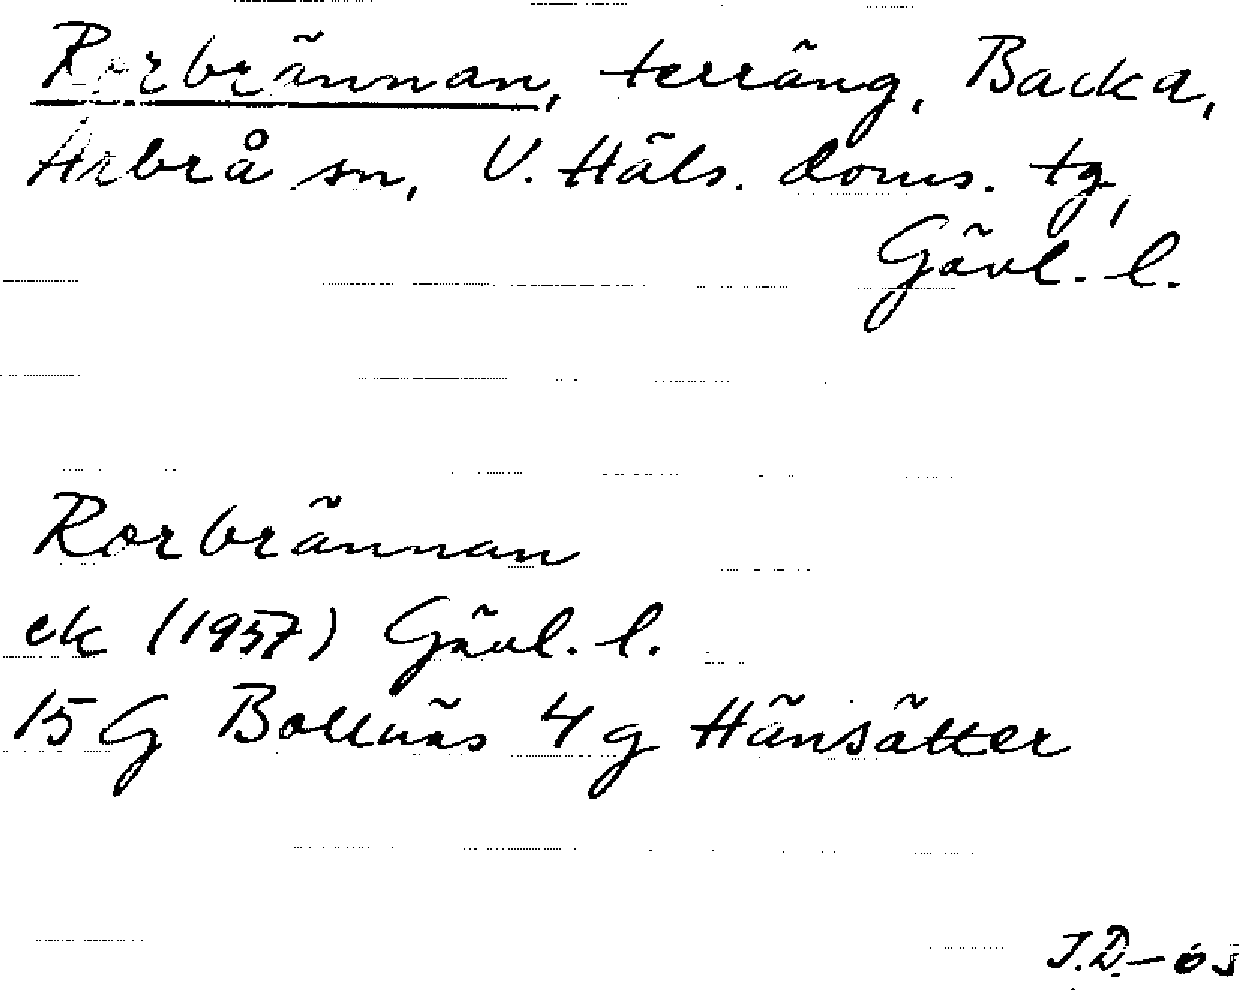 Rorbrännan, terräng, Backa,
Arbrå sn, V. Häls. doms. tg,
Gävl. l.
Rorbrännan
ek (1957) Gävl. l.
15 G Bollnäs 4 g Hänsätter
J.D.–65